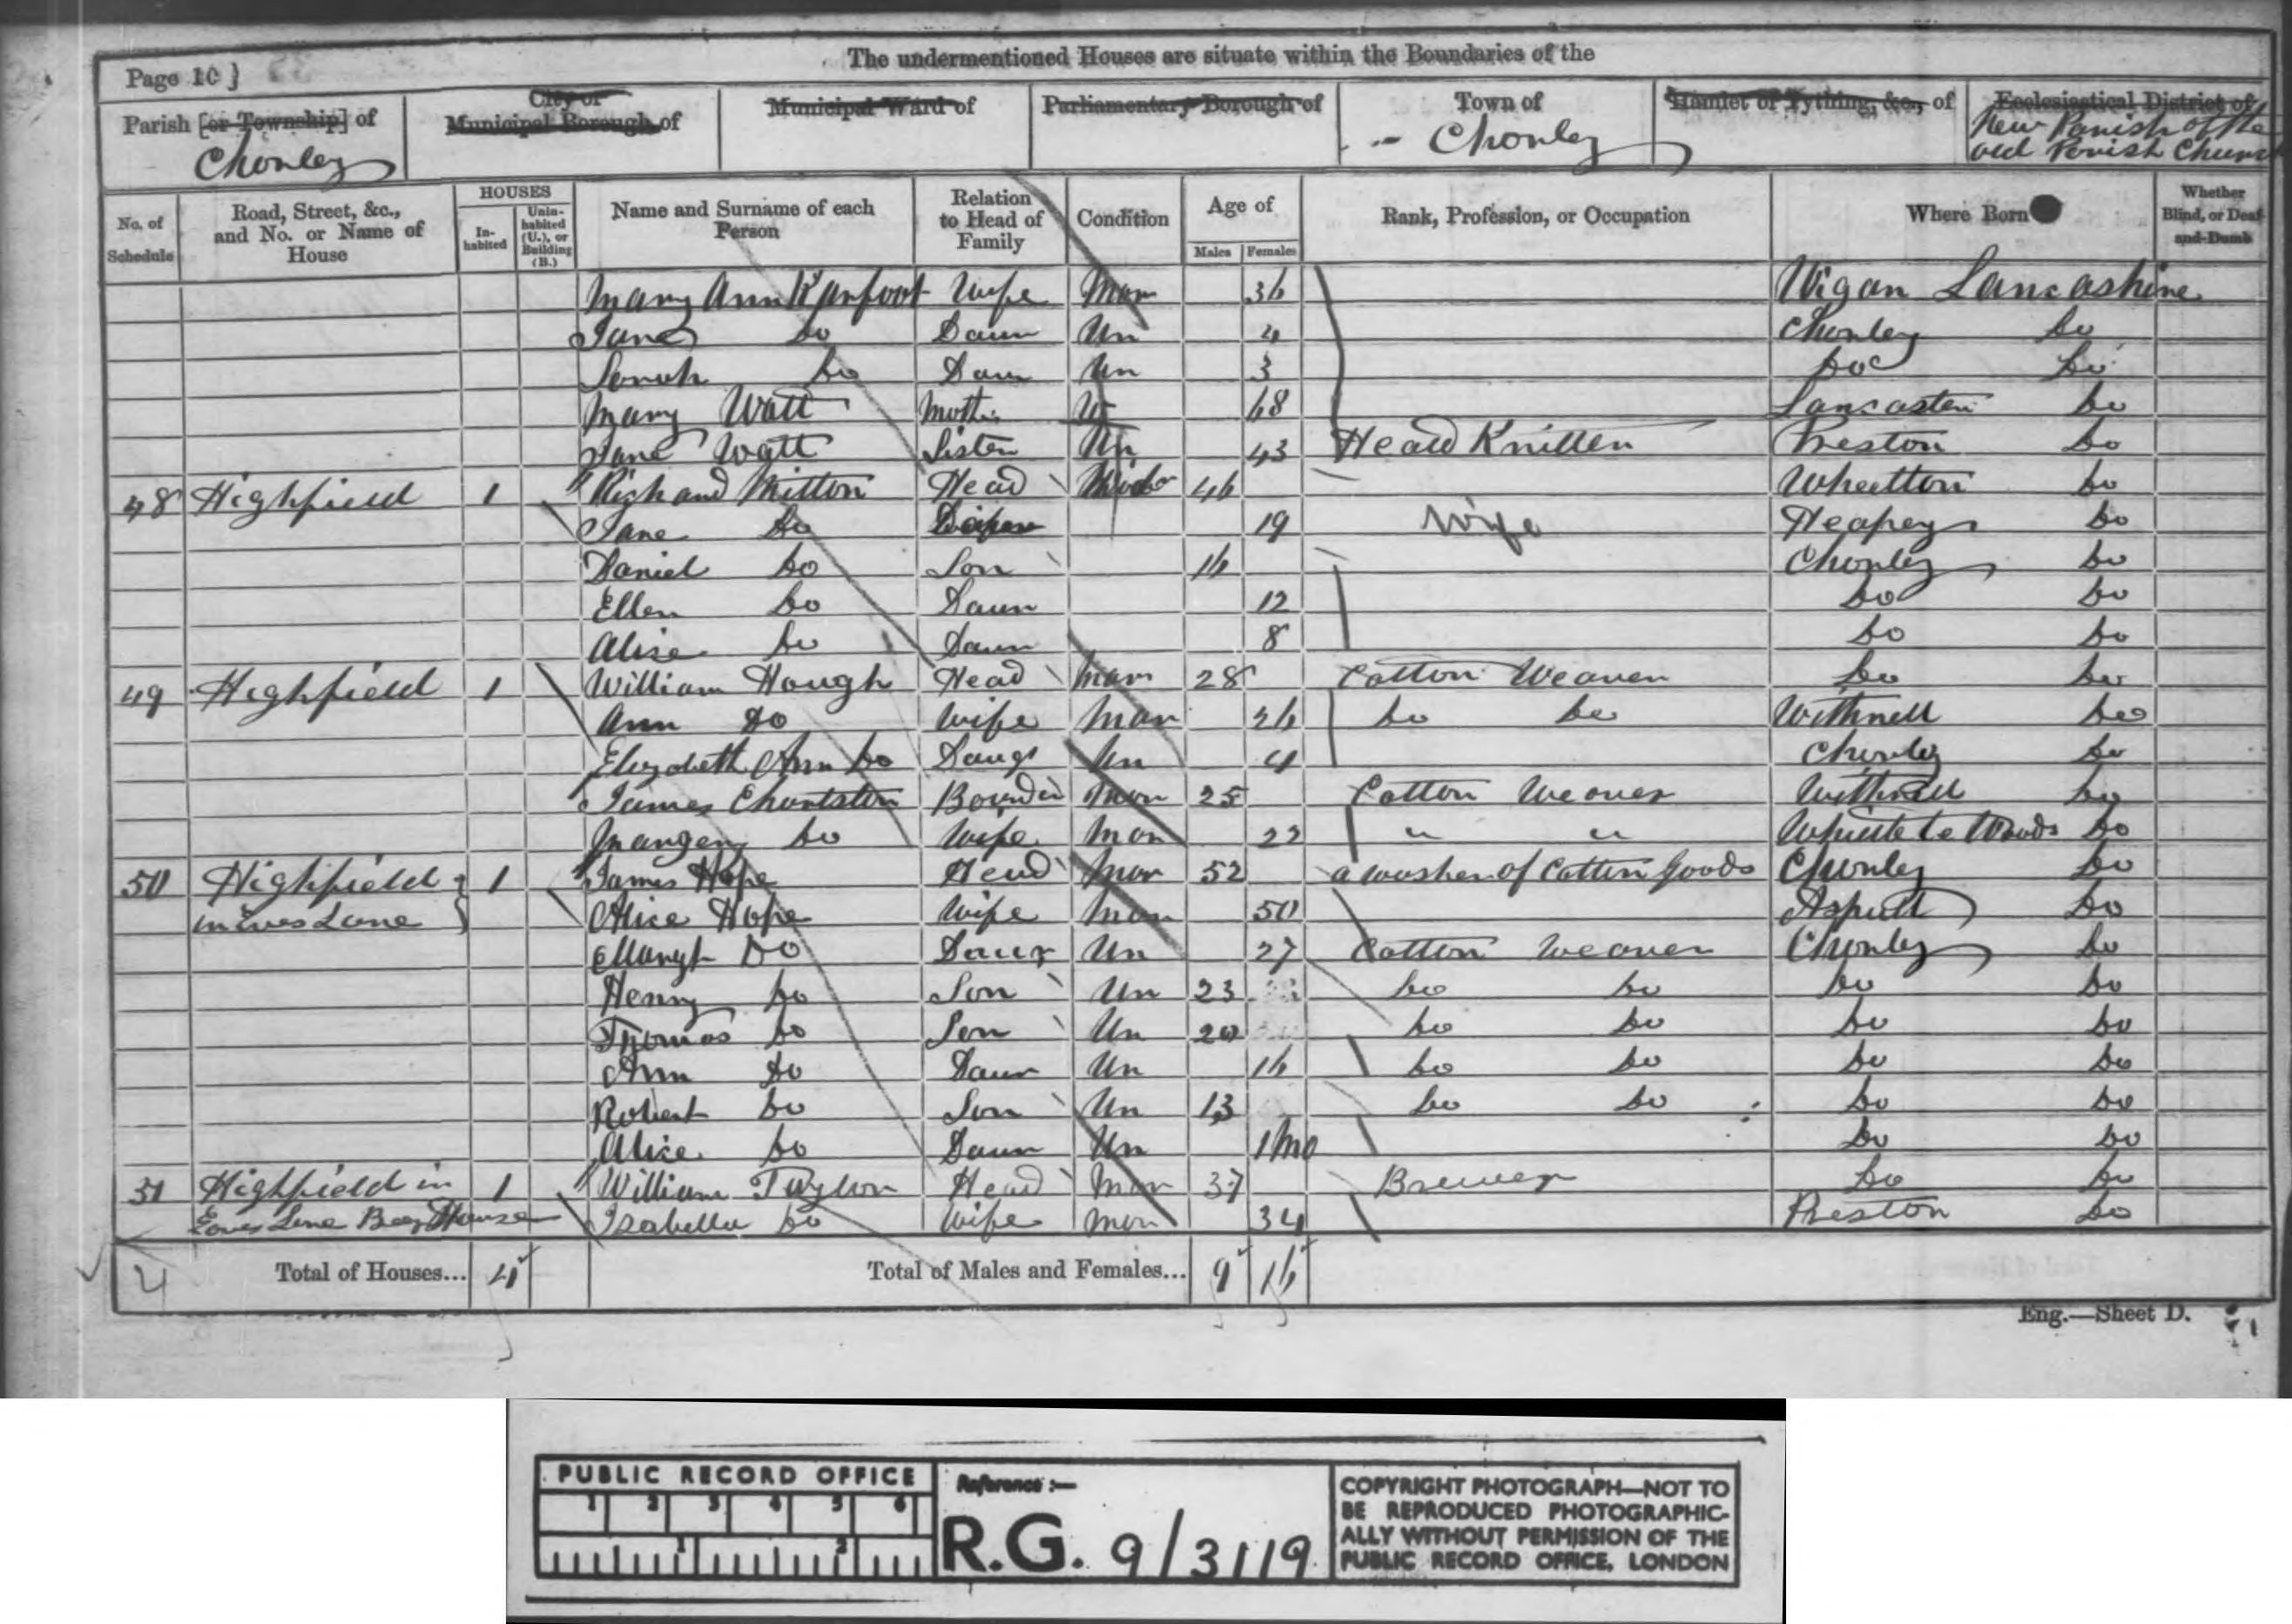 The undermentioned Houses are situate within the Boundaries of the
Page 10]
Parish [or Township] of
Chorley
City or Municipal Borough of
Municipal Ward of
Parliamentary Borough of
Town of
Chorley
Hamlet or Tything, &c., of
Ecclesiastical District of
New Parish of the old Parish Church
No. of Schedule
Road, Street, &c., and No. or Name of House
HOUSES
Inhabited
Uninhabited (U.), or Building (B.)
Name and Surname of each Person
Relation to Head of Family
Condition
Age of
Males
Females
Rank, Profession, or Occupation
Where Born
Whether Blind, or Deaf-and-Dumb
Mary Ann Karfoot Wife Mar 36 Wigan Lancashire
Jane Do Daur Un 4 Chorley Do
Sarah Do Daur Un 3 Do Do
Mary Watt Moth. W 68 Lancaster Do
Jane Watt Sister Un 43 Heald Knitter Preston Do
48 Highfield 1 Richard Mitton Head 46 Wheelton Do
Jane Do 19 Wife Heapey Do
Daniel Do Son 16 Chorley Do
Ellen Do Daur 12 Do Do
Alice Do Daur 8 Do Do
49 Highfield 1 William Hough Head Mar 28 Cotton Weaver Do Do
Ann Do Wife Mar 26 Do Do Withnell Do
Elizabeth Ann Do Daugr Un 4 Chorley Do
James Boarder Mar 25 Cotton Weaver Withnell Do
Do Wife Mar 22 " " Whittle le Woods Do
50 Highfield 1 James Hope Head Mar 52 a washer of Cotton Goods Chorley Do
in Eves Lane Alice Hope Wife Mar 50 Aspull Do
Margt Do Daur Un 27 Cotton Weaver Chorley Do
Henry Do Son Un 23 Do Do Do Do
Thomas Do Son Un 20 Do Do Do Do
Ann Do Daur Un 16 Do Do Do Do
Robert Do Son Un 13 Do Do Do Do
Alice Do Daur Un 1 Mo Do Do
51 Highfield in 1 William Taylor Head Mar 37 Brewer Do Do
Eaves Lane Beer House Isabella Do Wife Mar 34 Preston Do
4 Total of Houses... 4 Total of Males and Females... 9 16
Eng.—Sheet D.
PUBLIC RECORD OFFICE
1 2 3 4 5 6
1 2
Reference :—
R.G. 9/3119
COPYRIGHT PHOTOGRAPH—NOT TO
BE REPRODUCED PHOTOGRAPHIC-
ALLY WITHOUT PERMISSION OF THE
PUBLIC RECORD OFFICE, LONDON